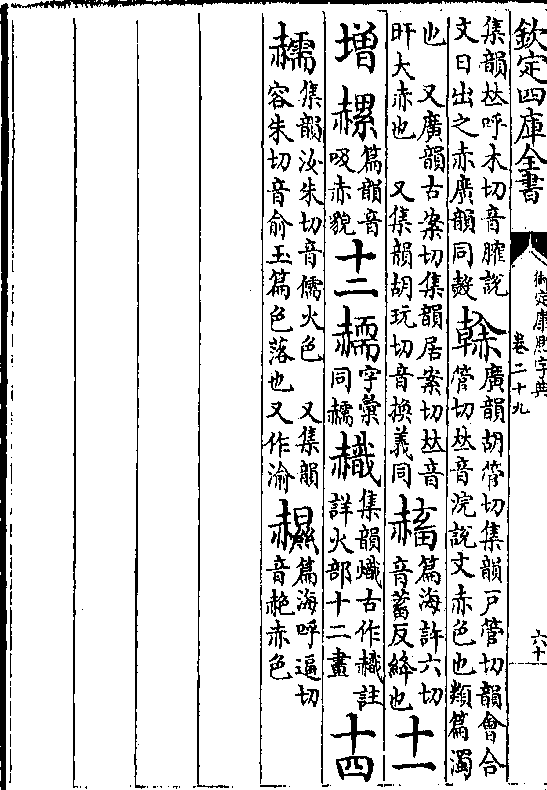 欽定四庫全書
御定康熙字典
卷二十九
六十
集韻𠀤呼木切音說
文日出之赤廣韻同
廣韻胡管切集韻戶管切韻會合
管切𠀤音浣說文赤色也類篇濁
也　又廣韻古案切集韻居案切𠀤音
旰大赤也　又集韻胡玩切音換義同
篇海許六切
音蓄反絳也
十一
增
篇韻音
吸赤貌
十二
字彙
同
集韻熾古作註
詳火部十二畫
十四
集韻汝朱切音儒火色　又集韻
容朱切音俞玉篇色落也　又作渝
篇海呼逼切
音赩赤色